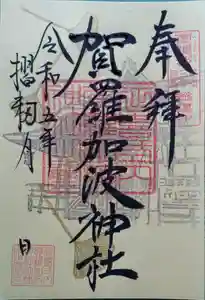 奉拝
賀羅加波神社
令和五年
初月 日